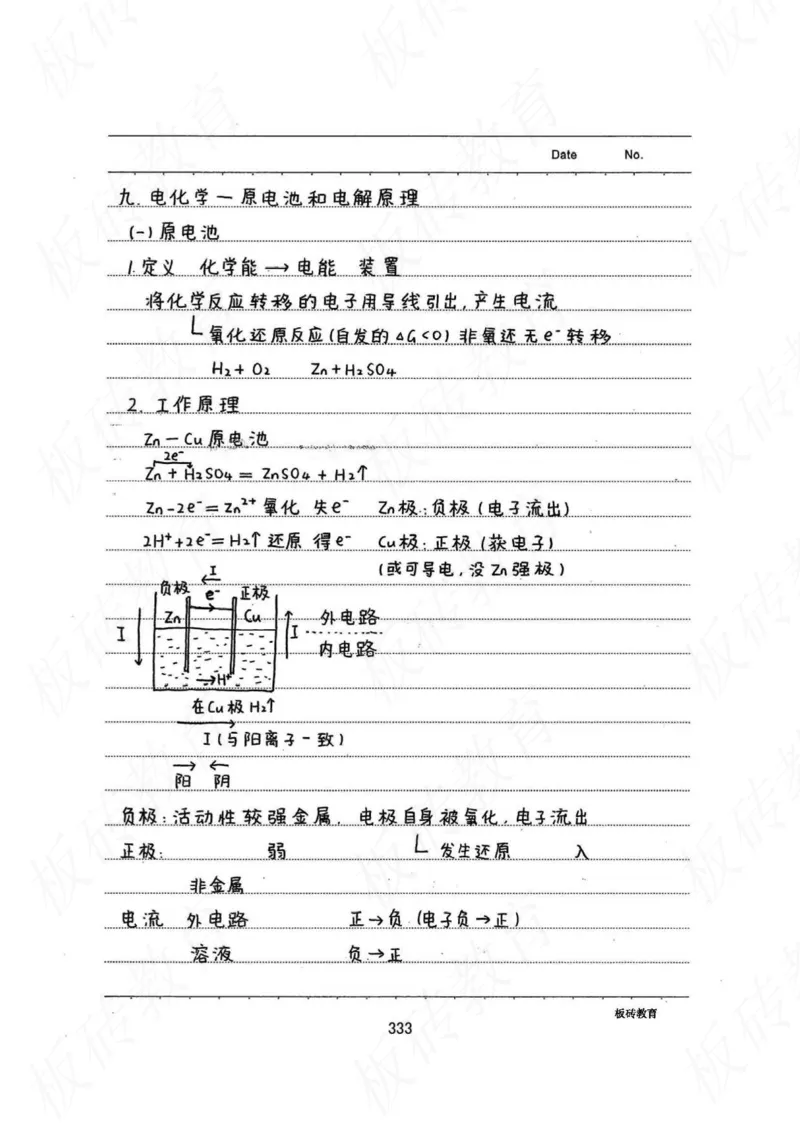 Date No.
九. 电化学一原电池和电解原理
(一)原电池
1.定义 化学能→电能 装置
将化学反应转移的电子用导线引出,产生电流
氧化还原反应(自发的 △G<0) 非氧还无e⁻转移
H₂+O₂ Zn+H₂SO₄
2. 工作原理
Zn—Cu原电池
2e⁻
Zn + H₂SO₄ = ZnSO₄ + H₂↑
Zn-2e⁻=Zn²⁺ 氧化 失e⁻ Zn极:负极(电子流出)
2H⁺+2e⁻=H₂↑还原 得e⁻ Cu极:正极(获电子)
(或可导电,没Zn强极)
I
负极 e⁻ 正极
Zn Cu 外电路
I I
内电路
→H⁺
在Cu极H₂↑
I(与阳离子一致)
→ ←
阳 阴
负极:活动性较强金属. 电极自身被氧化,电子流出
正极: 弱 发生还原 入
非金属
电流 外电路 正→负(电子负→正)
溶液 负→正
板砖教育
333
板砖教育